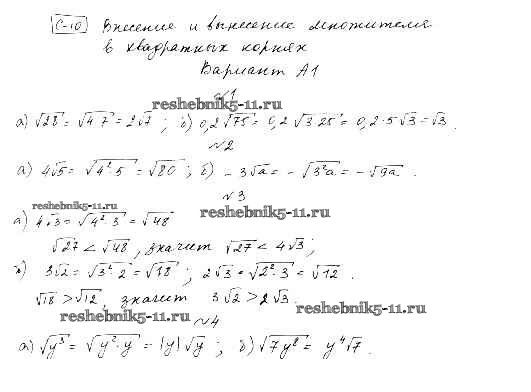 С-10 Внесение и вынесение множителя
в квадратных корнях
Вариант А1
№1
reshebnik5-11.ru
а) √28 = √4·7 = 2√7 ; б) 0,2√75 = 0,2√3·25 = 0,2·5√3 = √3 .
№2
а) 4√5 = √4²·5 = √80 ; б) -3√a = -√3²a = -√9a .
№3
reshebnik5-11.ru
reshebnik5-11.ru
а) 4√3 = √4²·3 = √48
√27 < √48 , значит √27 < 4√3 ;
б) 3√2 = √3²·2 = √18 ; 2√3 = √2²·3 = √12 .
√18 > √12 , значит 3√2 > 2√3 .
reshebnik5-11.ru
reshebnik5-11.ru
№4
а) √y³ = √y²·y = |y|√y ; б) √7y⁸ = y⁴√7 .